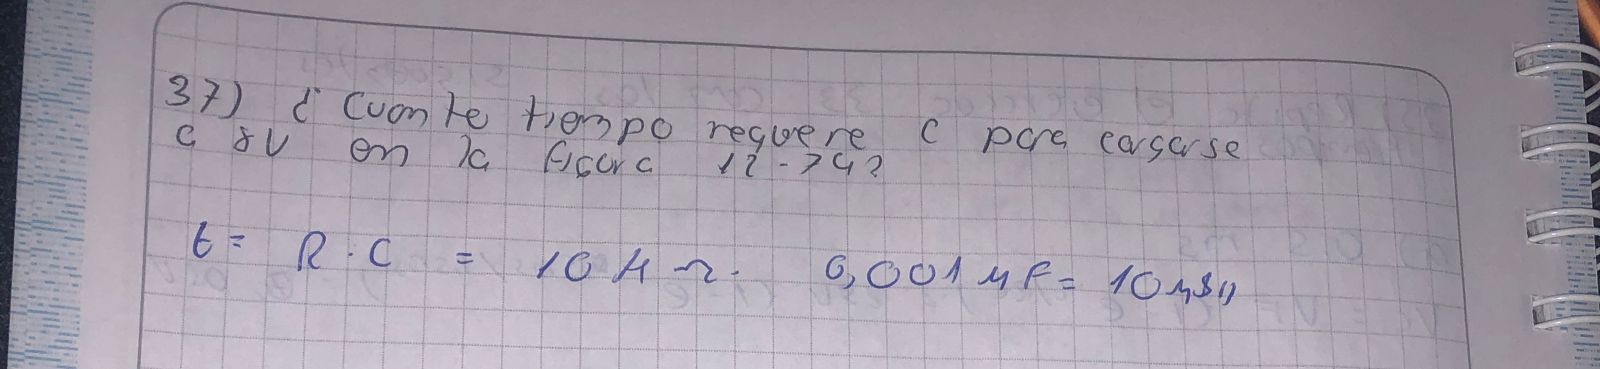 37) ¿ Cuanto tiempo requere C para cargarse
a 8V en la figura 12-74?
t = R . C = 10 K Ω . 0,001 μF = 10 μs //